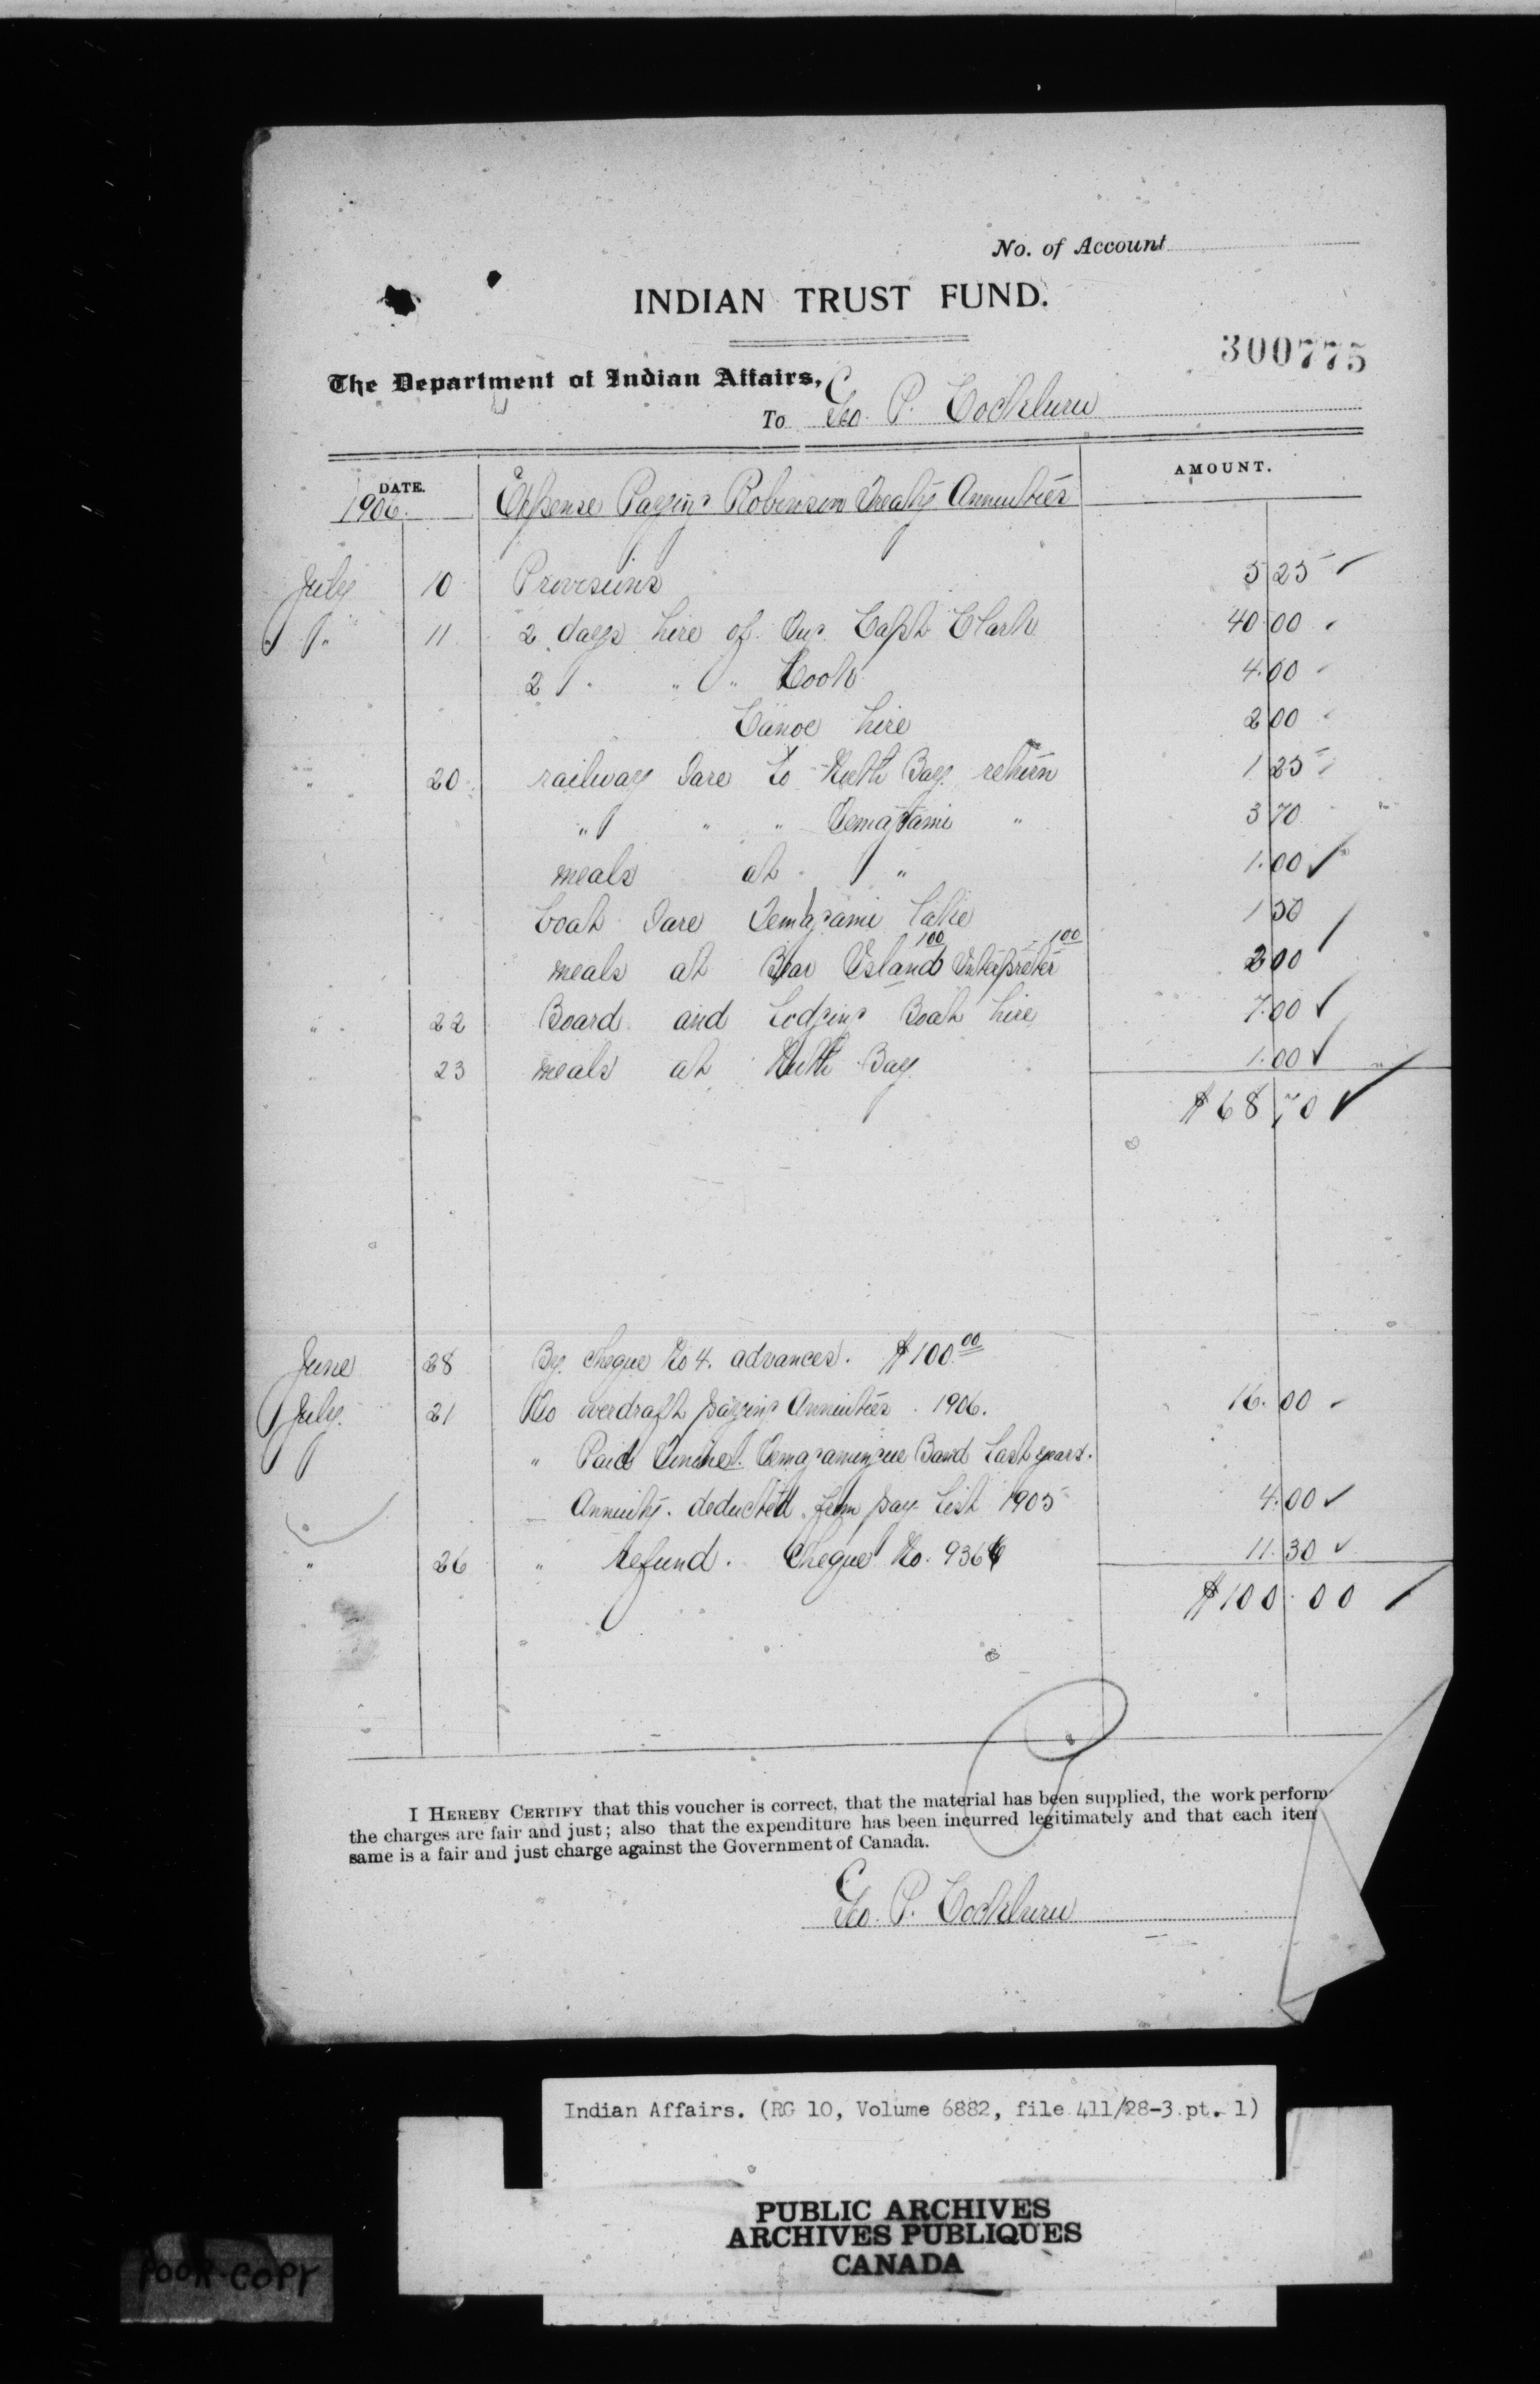 No. of Account
INDIAN TRUST FUND.
300775
The Department of Indian Affairs,
To Geo. P. Cockburn
DATE. AMOUNT.
1906. Expense Paying Robinson Treaty Annuities
July 10 Provisions 5 25
" 11 2 days hire of Tug Capt Clark 40 00
2 " " " Cook 4.00
Canoe hire 2 00
" 20 railway fare to North Bay return 1 25
" " " Temagami " 3 70
meals at " 1.00
boat fare Temagami lake 1 50
meals at Bear Island 1 00 Interpreter 1 00 2 00
" 22 Board and Lodging Boat hire 7.00
23 meals at North Bay 1.00
$68 70
June 28 By cheque No 4. advances. $100 00
July 21 To overdraft paying Annuities 1906. 16.00
" Paid Temagamingue Band last years.
Annuity. deducted from pay list 1905 4.00
" 26 " refund. Cheque No. 11.30
$100.00
I HEREBY CERTIFY that this voucher is correct, that the material has been supplied, the work perform
the charges are fair and just; also that the expenditure has been incurred legitimately and that each item
same is a fair and just charge against the Government of Canada.
Geo. P. Cockburn
Indian Affairs. (RG 10, Volume 6882, file 411/28-3 pt. 1)
PUBLIC ARCHIVES
ARCHIVES PUBLIQUES
CANADA
POOR COPY